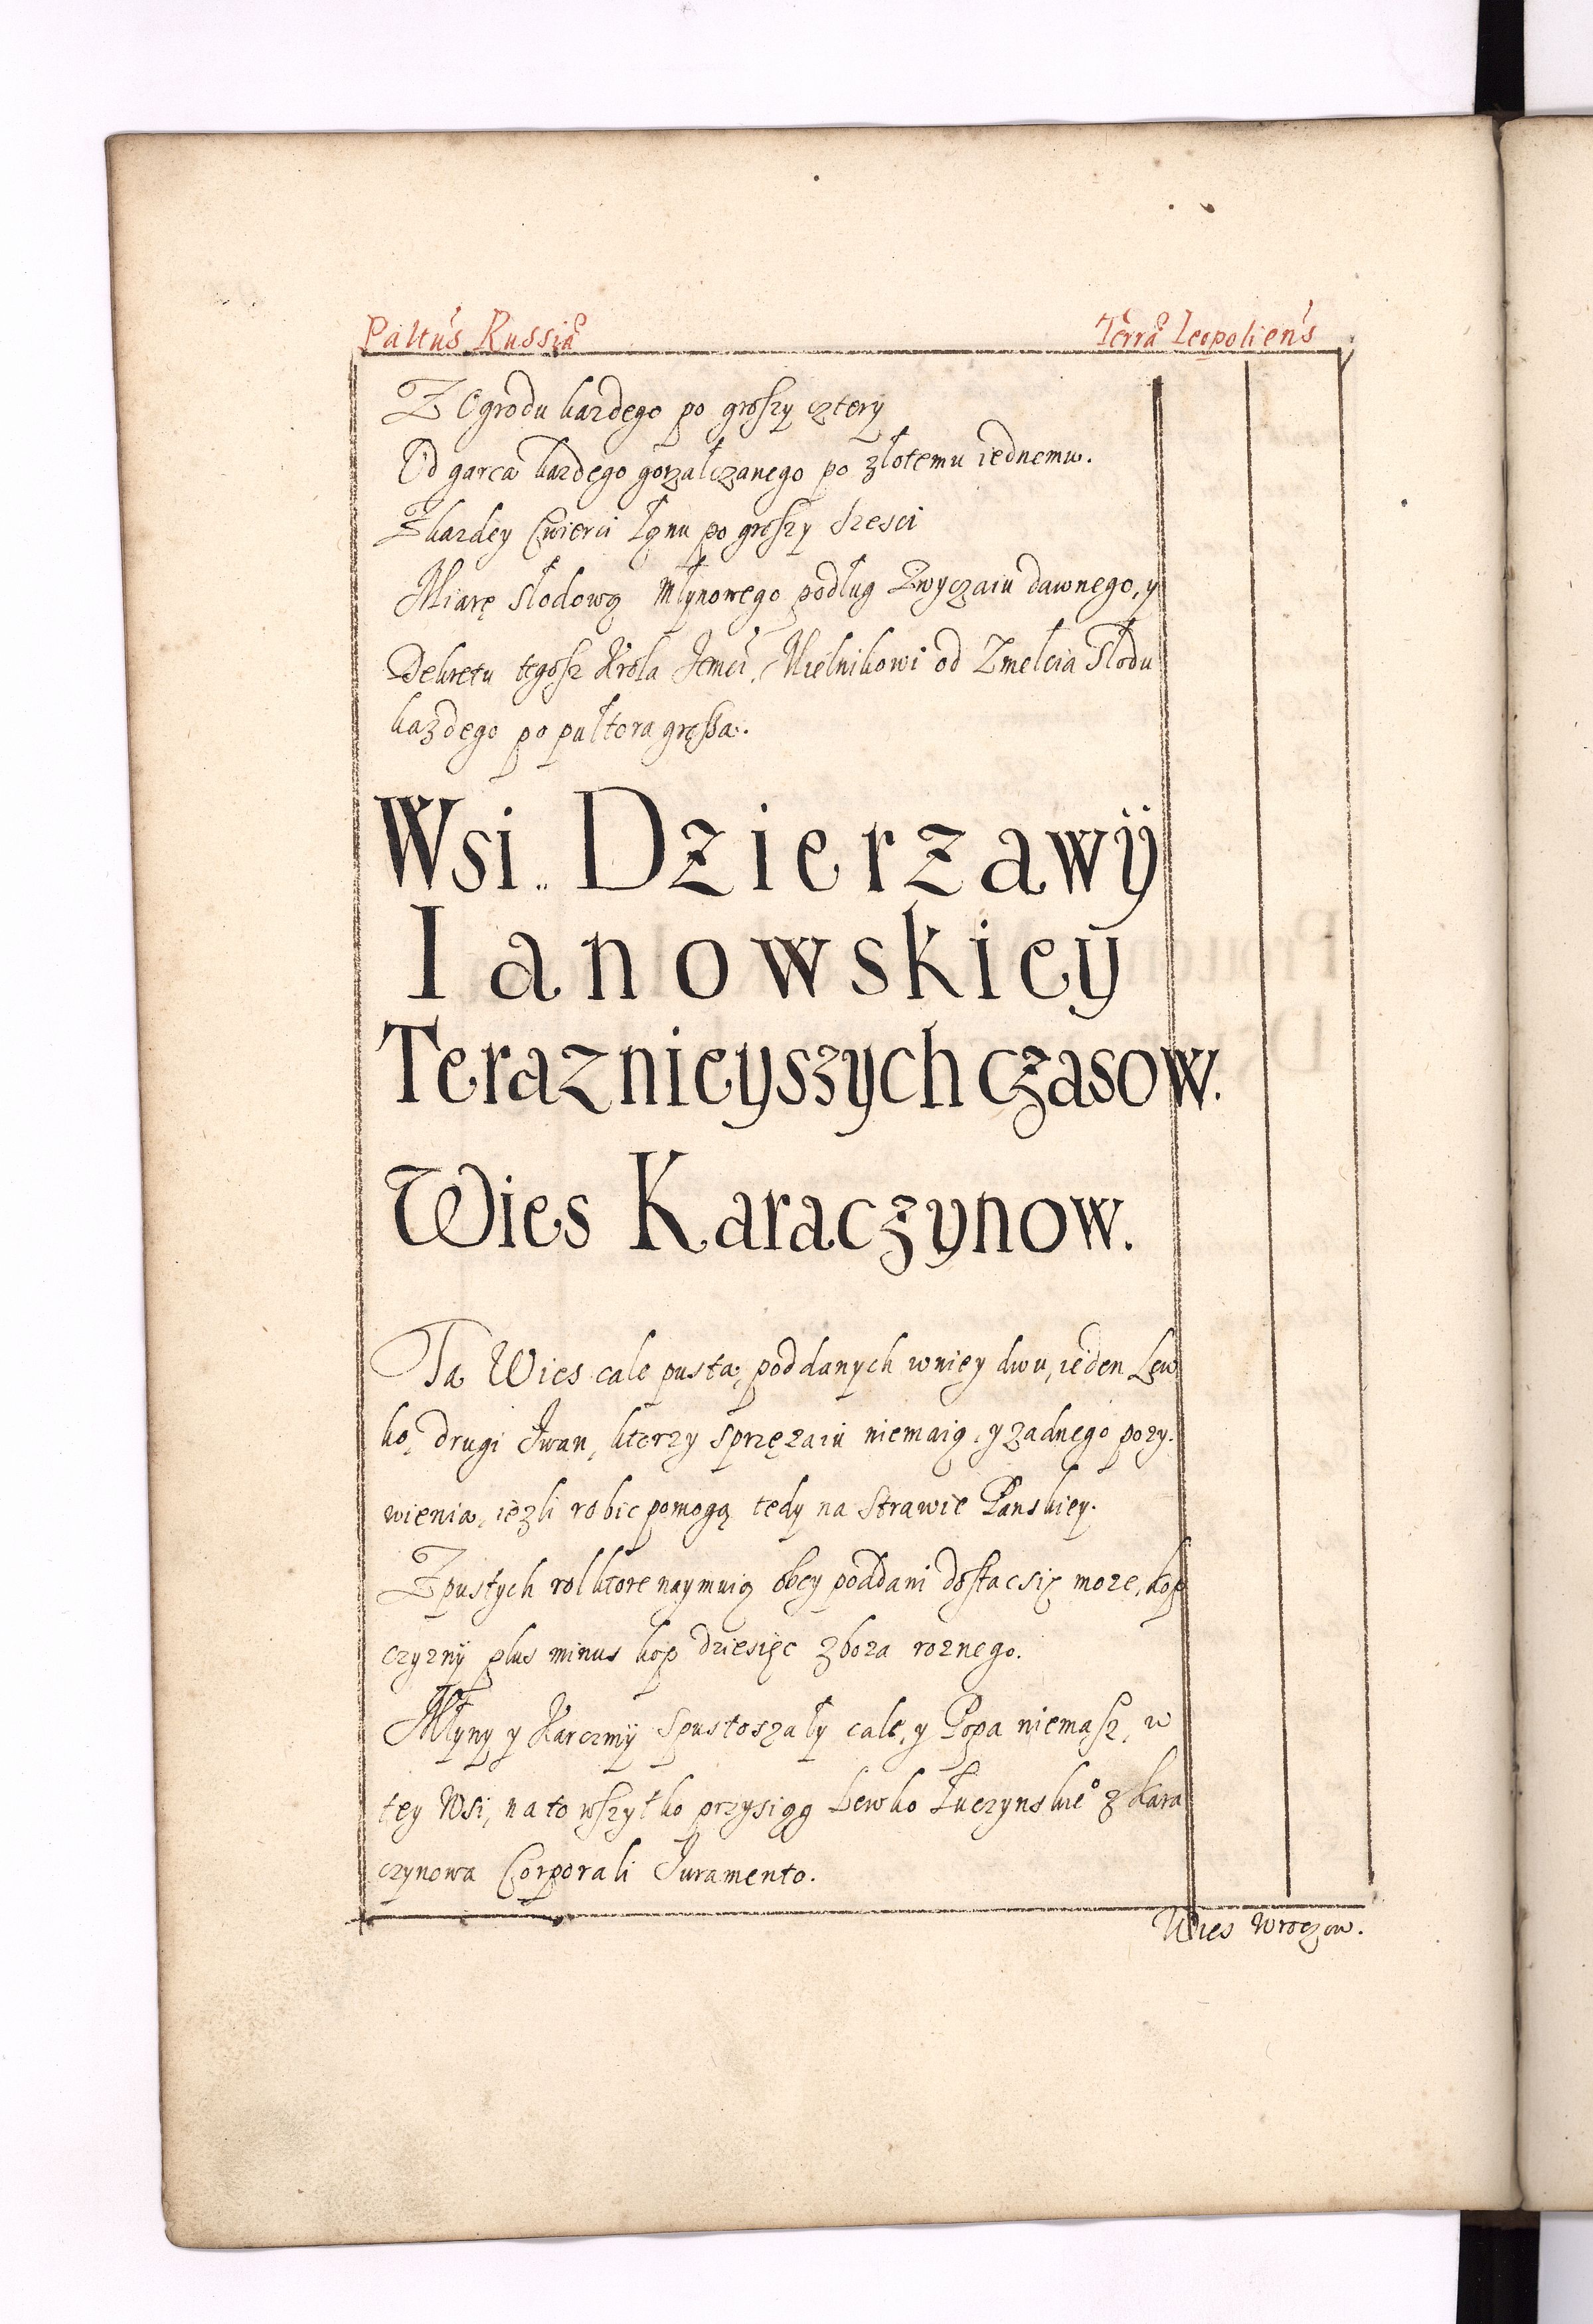 Paltus Russiæ Terræ Leopoliens
Z Ogrodu kazdego po groszy cztery
Od garca kazdego gorzałczanego po złotemu iednemu.
Z kazdey Cwierci Łanu po groszy szesci
Miarę słodową Młynowego podług Zwyczaiu dawnego, y
Dekretu tegosz Krola Jemci, Mielnikowi od Zmełcia Słodu
kazdego po pułtora grossa.
Wsi Dzierzawÿ
Ianowskieÿ
Teraznieyszych czasow.
Wies Karaczynow.
Ta Wies cale pusta, poddanych wniey dwu, ieden Lew
ko, drugi Iwan, ktorzy sprzęzaiu niemaią, y zadnego pozy.
wienia, iezli robic pomogą tedy na Strawie Panskiey.
Z pustych rol ktore naymuią obcy poddani dostac się moze, kop
czyzny plus minus kop dziesięc zboza roznego.
Młyny y Karczmÿ spustoszały cale, y Popa niemasz, w
tey Wsi, na to wszytko przysiągł Lewko Łuczynskie° z Kara
czynowa Corporali Iuramento.
Wies Wroczow.